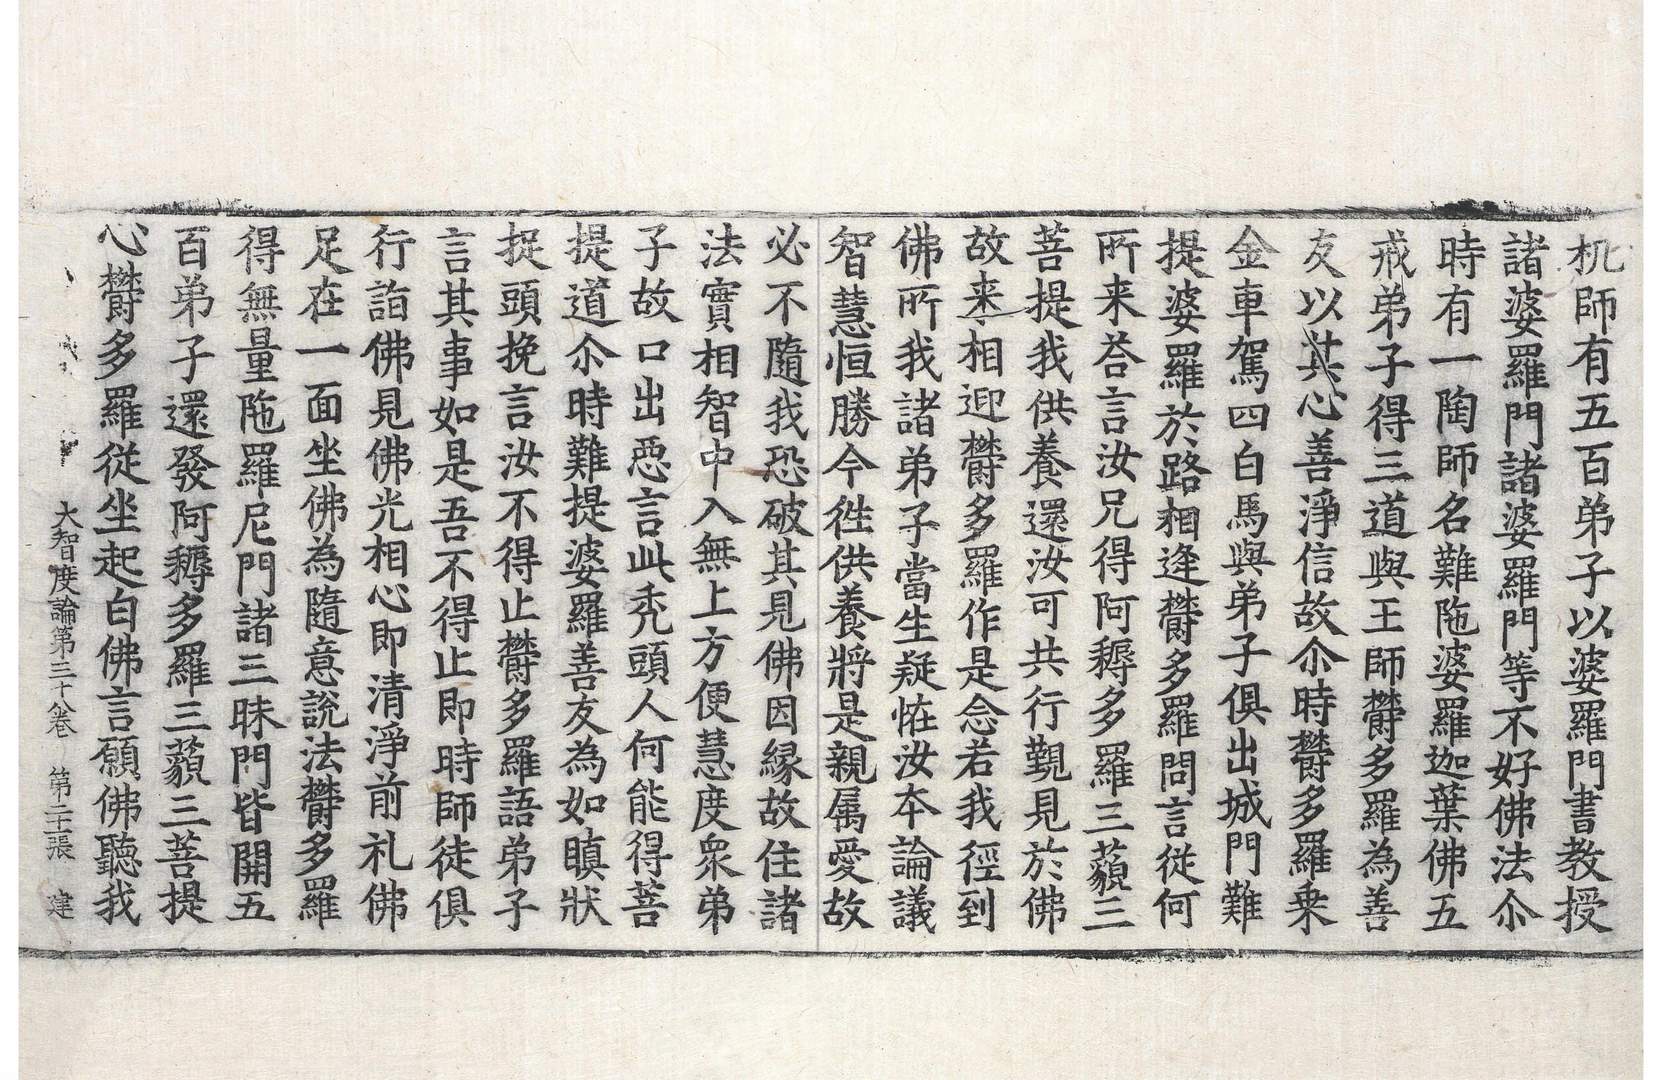 机師有五百弟子以婆羅門書教授
諸婆羅門諸婆羅門等不好佛法尒
時有一陶師名難陁婆羅迦葉佛五
戒弟子得三道與王師欝多羅為善
友以其心善淨信故尒時欝多羅乗
金車駕四白馬與弟子俱出城門難
提婆羅於路相逢欝多羅問言従何
所来荅言汝兄得阿耨多羅三藐三
菩提我供養還汝可共行覲見於佛
故来相迎欝多羅作是念若我徑到
佛所我諸弟子當生疑恠汝本論議
智慧恒勝今徃供養將是親属愛故
必不隨我恐破其見佛因縁故住諸
法實相智中入無上方便慧度衆弟
子故口出惡言此禿頭人何能得菩
提道尒時難提婆羅善友為如瞋狀
捉頭挽言汝不得止欝多羅語弟子
言其事如是吾不得止即時師徒俱
行詣佛見佛光相心即清淨前礼佛
足在一面坐佛為隨意說法欝多羅
得無量陁羅尼門諸三昧門皆開五
百弟子還發阿耨多羅三藐三菩提
心欝多羅従坐起白佛言願佛聽我
大智度論第三十八卷 第二十張 建